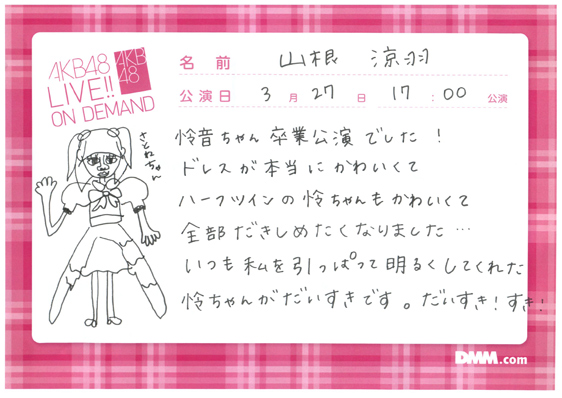 AKB48
LIVE!!
ON DEMAND
AKB
48
名前 山根 涼羽
公演日 3月27日 17:00 公演
さとねちゃん
怜音ちゃん卒業公演でした!
ドレスが本当にかわいくて
ハーフツインの怜ちゃんもかわいくて
全部だきしめたくなりました…
いつも私を引っぱって明るくしてくれた
怜ちゃんがだいすきです。だいすき!すき!
DMM.com